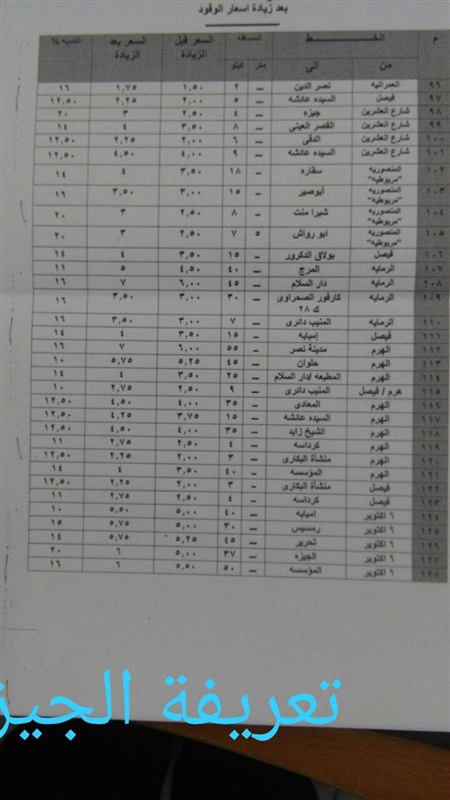 بعد زيادة اسعار الوقود
م الخط المسافه السعر قبل الزيادة السعر بعد الزيادة النسبه %
من الى كيلو متر
٩٦ العمرانيه نصر الدين ٢ ــ ١,٥٠ ١,٧٥ ١٦
٩٧ فيصل السيده عائشه ٥ ــ ٢,٠٠ ٢,٢٥ ١٢,٥٠
٩٨ شارع العشرين جيزه ٤ ــ ٢,٥٠ ٣ ٢٠
٩٩ شارع العشرين القصر العينى ٨ ــ ٣,٥٠ ٤ ١٤
١٠٠ شارع العشرين الدقى ٦ ــ ٢,٠٠ ٢,٢٥ ١٢,٥٠
١٠١ شارع العشرين السيده عائشه ٩ ــ ٤,٠٠ ٤,٥٠ ١٢,٥٠
١٠٢ المنصوريه "مريوطيه" سقاره ١٨ ــ ٣,٥٠ ٤ ١٤
١٠٣ المنصوريه "مريوطيه" ابوصير ١٥ ــ ٣,٠٠ ٣,٥٠ ١٦
١٠٤ المنصوريه "مريوطيه" شبرا منت ٨ ــ ٢,٥٠ ٣ ٢٠
١٠٥ المنصوريه "مريوطيه" ابو رواش ٥ ٧ ٢,٥٠ ٣ ٢٠
١٠٦ فيصل بولاق الدكرور ١٥ ــ ٣,٥٠ ٤ ١٤
١٠٧ الرمايه المرج ٤٠ ــ ٤,٥٠ ٥ ١١
١٠٨ الرمايه دار السلام ٤٥ ــ ٦,٠٠ ٧ ١٦
١٠٩ الرمايه كارفور الصحراوى ك ٢٨ ٣٠ ــ ٣,٠٠ ٣,٥٠ ١٦
١١٠ الرمايه المنيب دائرى ٧ ــ ٣,٠٠ ٣,٥٠ ١٦
١١١ فيصل إمبابه ١٥ ــ ٣,٥٠ ٤ ١٤
١١٢ الهرم مدينة نصر ٥٥ ــ ٦,٠٠ ٧ ١٦
١١٣ الهرم حلوان ٤٥ ــ ٥,٢٥ ٥,٧٥ ١٠
١١٤ الهرم المطبعه /دار السلام ٢٥ ــ ٣,٥٠ ٤ ١٤
١١٥ هرم / فيصل المنيب دائرى ٩ ــ ٢,٥٠ ٢,٧٥ ١٠
١١٦ الهرم المعادى ٣٥ ــ ٤,٠٠ ٤,٥٠ ١٢,٥٠
١١٧ الهرم السيده عائشه ١٥ ــ ٣,٧٥ ٤,٢٥ ١٢,٥٠
١١٨ الهرم الشيخ زايد ٣٥ ــ ٤,٠٠ ٤,٥٠ ١٢,٥٠
١١٩ الهرم كرداسه ٤ ــ ٢,٥٠ ٢,٧٥ ١١
١٢٠ الهرم منشأة البكارى ٣ ــ ٢,٠٠ ٢,٢٥ ١٢,٥٠
١٢١ الهرم المؤسسه ٤٠ ــ ٣,٥٠ ٤ ١٤
١٢٢ فيصل منشأة البكارى ٣ ــ ٢,٠٠ ٢,٢٥ ١٢,٥٠
١٢٣ فيصل كرداسه ٤ ــ ٢,٥٠ ٢,٧٥ ١١
١٢٤ ٦ اكتوبر امبابه ٤٠ ــ ٥,٠٠ ٥,٥٠ ١٠
١٢٥ ٦ اكتوبر رمسيس ٣٠ ــ ٥,٠٠ ٥,٧٥ ١٥
١٢٦ ٦ اكتوبر تحرير ٤٥ ــ ٥,٢٥ ٥,٧٥ ١٤
١٢٧ ٦ اكتوبر الجيزه ٣٧ ــ ٥,٠٠ ٦ ٢٠
١٢٨ ٦ اكتوبر المؤسسه ٥٠ ــ ٥,٥٠ ٦ ١٦
تعريفة الجيز